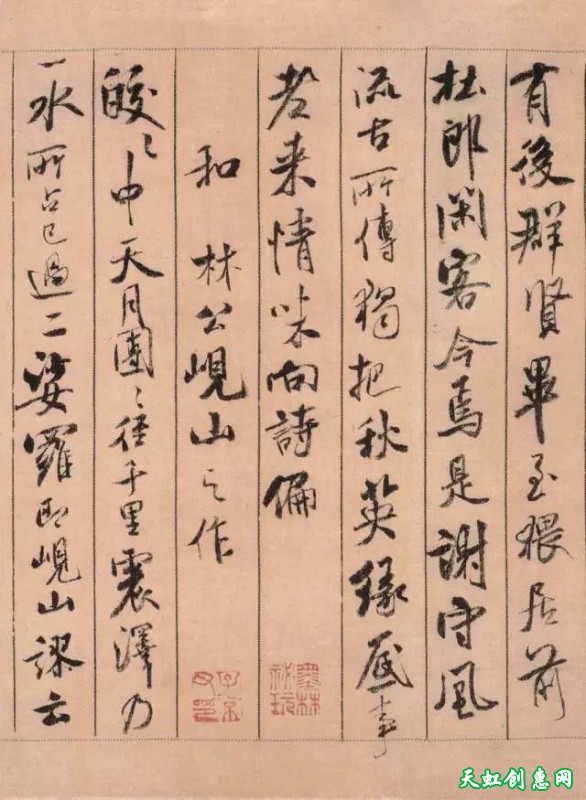 有後群賢畢至猥居前
杜郎閑客今焉是謝守風
流古所傳獨把秋英緣底事
老来情味向詩偏
和林公峴山之作
皎〻中天月團〻徑千里震澤乃
一水所占已過二娑羅即峴山謬云
墨林祕玩
子京父印
天虹创惠网